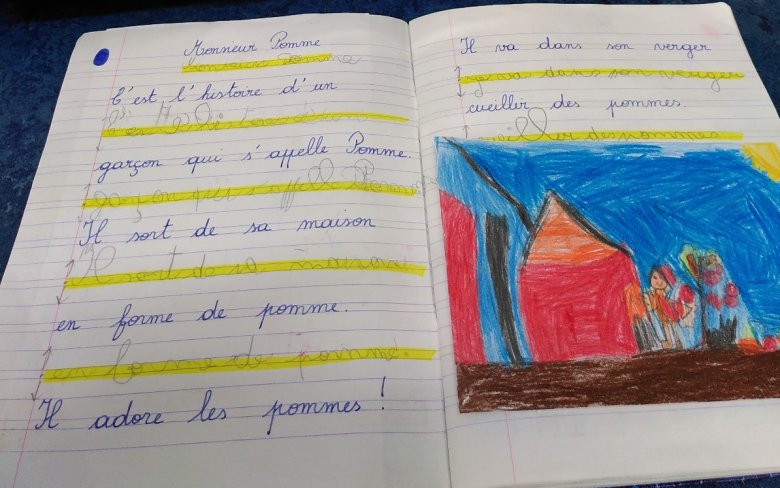 Monsieur Pomme
Monsieur Pomme
C'est l'histoire d'un
C'est l'histoire d'un
garçon qui s'appelle Pomme.
garçon qui s'appelle Pomme
Il sort de sa maison
Il sort de sa maison
en forme de pomme.
en forme de pomme.
Il adore les pommes !
Il va dans son verger
va dans son verger
cueillir des pommes.
cueillir des pommes